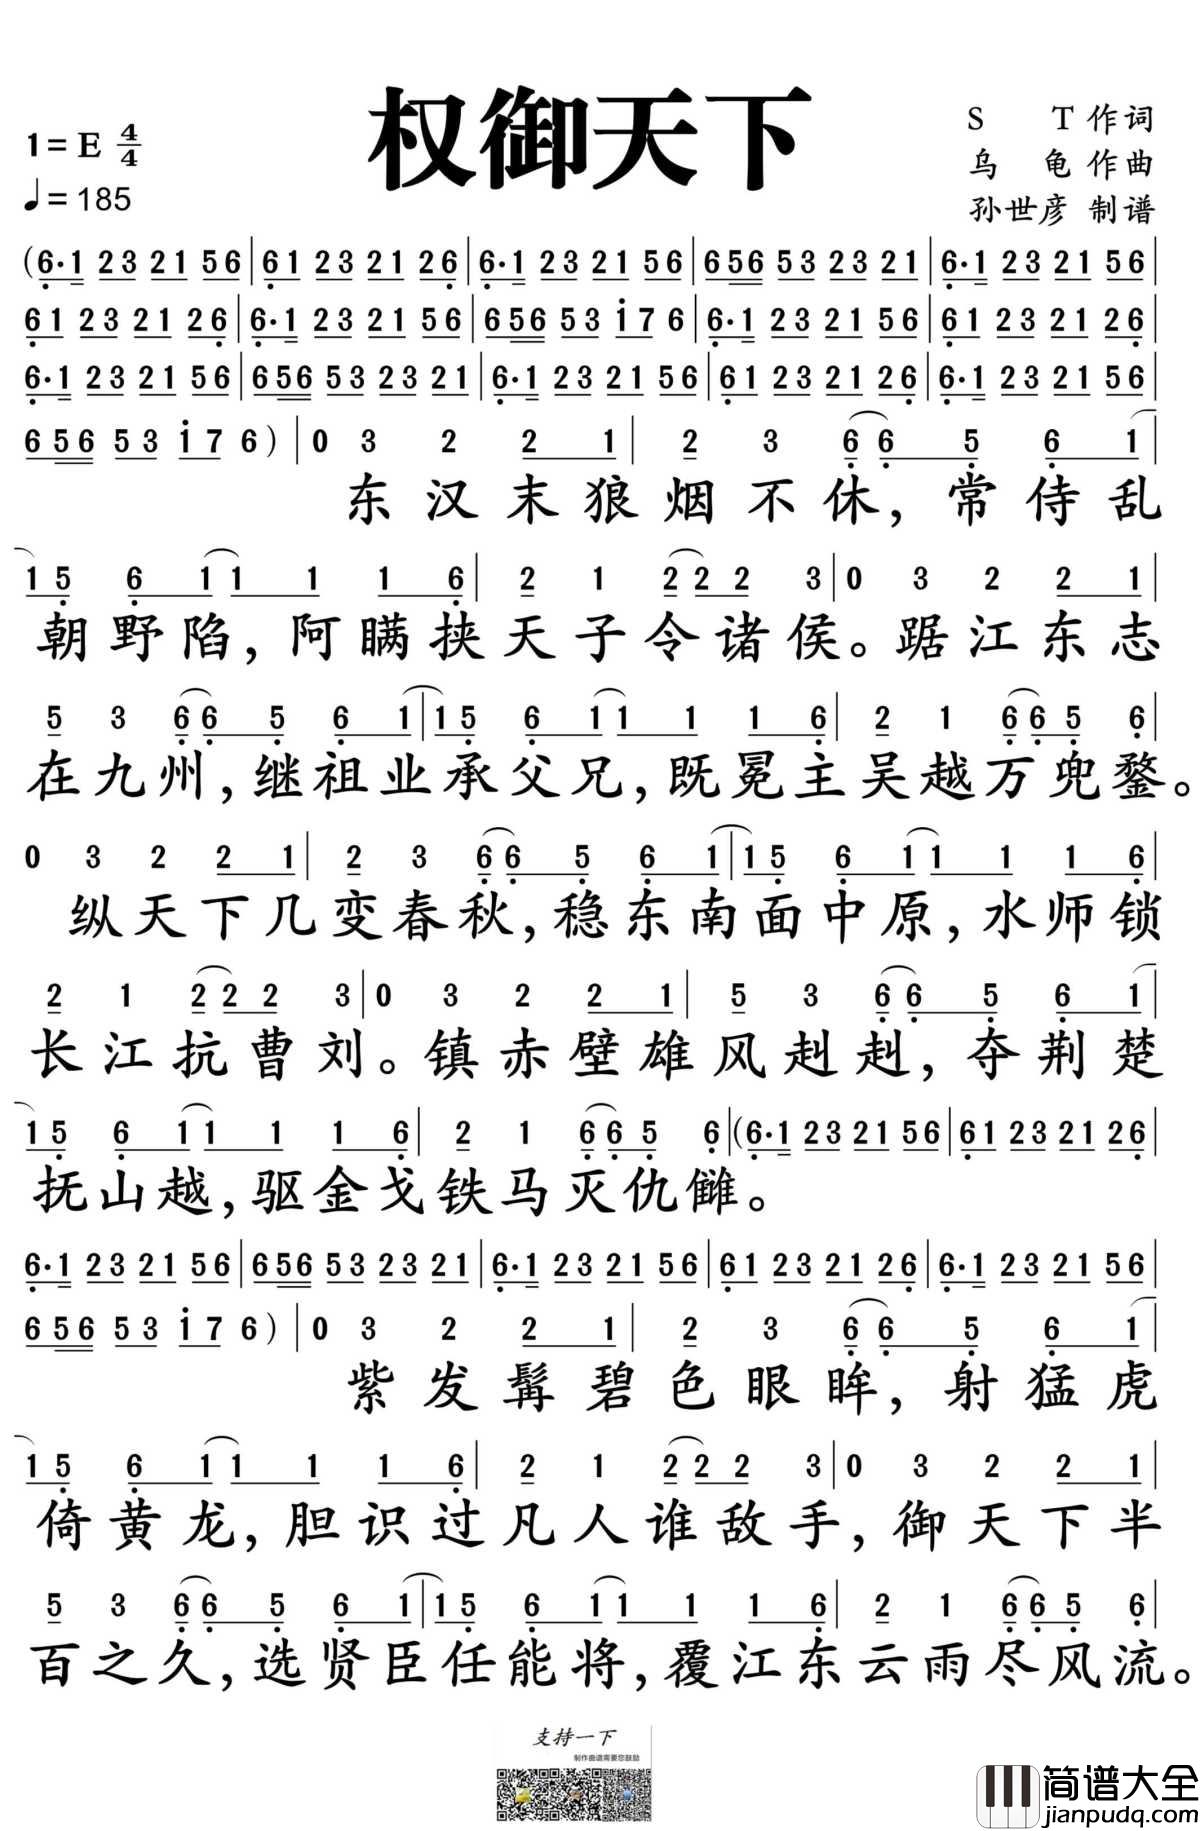 权御天下
1=E 4/4
♩=185
S T 作词
乌 龟 作曲
孙世彦 制谱
(6·1 23 21 56|61 23 21 26|6·1 23 21 56|656 53 23 21|6·1 23 21 56|
61 23 21 26|6·1 23 21 56|656 53 i7 6|6·1 23 21 56|61 23 21 26|
6·1 23 21 56|656 53 23 21|6·1 23 21 56|61 23 21 26|6·1 23 21 56|
656 53 i7 6)|0 3 2 2 1|2 3 66 5 6 1|
东汉末狼烟不休，常侍乱
15 6 11 1 1 6|2 1 22 2 3|0 3 2 2 1|
朝野陷，阿瞒挟天子令诸侯。踞江东志
5 3 66 5 6 1|15 6 11 1 1 6|2 1 66 5 6|
在九州，继祖业承父兄，既冕主吴越万兜鍪。
0 3 2 2 1|2 3 66 5 6 1|15 6 11 1 1 6|
纵天下几变春秋，稳东南面中原，水师锁
2 1 22 2 3|0 3 2 2 1|5 3 66 5 6 1|
长江抗曹刘。镇赤壁雄风赳赳，夺荆楚
15 6 11 1 1 6|2 1 66 5 6|(6·1 23 21 56|61 23 21 26|
抚山越，驱金戈铁马灭仇雠。
6·1 23 21 56|656 53 23 21|6·1 23 21 56|61 23 21 26|6·1 23 21 56|
656 53 i7 6)|0 3 2 2 1|2 3 66 5 6 1|
紫发髯碧色眼眸，射猛虎
15 6 11 1 1 6|2 1 22 2 3|0 3 2 2 1|
倚黄龙，胆识过凡人谁敌手，御天下半
5 3 66 5 6 1|15 6 11 1 1 6|2 1 66 5 6|
百之久，选贤臣任能将，覆江东云雨尽风流。
支持一下
制作曲谱需要您鼓励
简谱大全
jianpudq.com